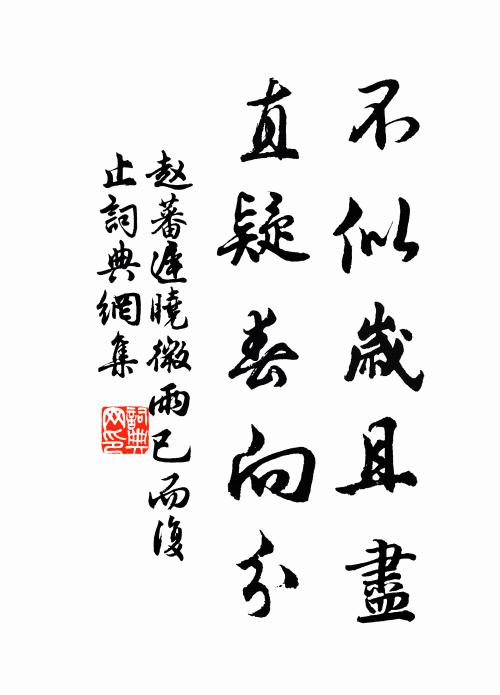 不似歲且盡
直疑春向分
赵蕃遲曉微雨已而復
止詞典網集
詞典
网印